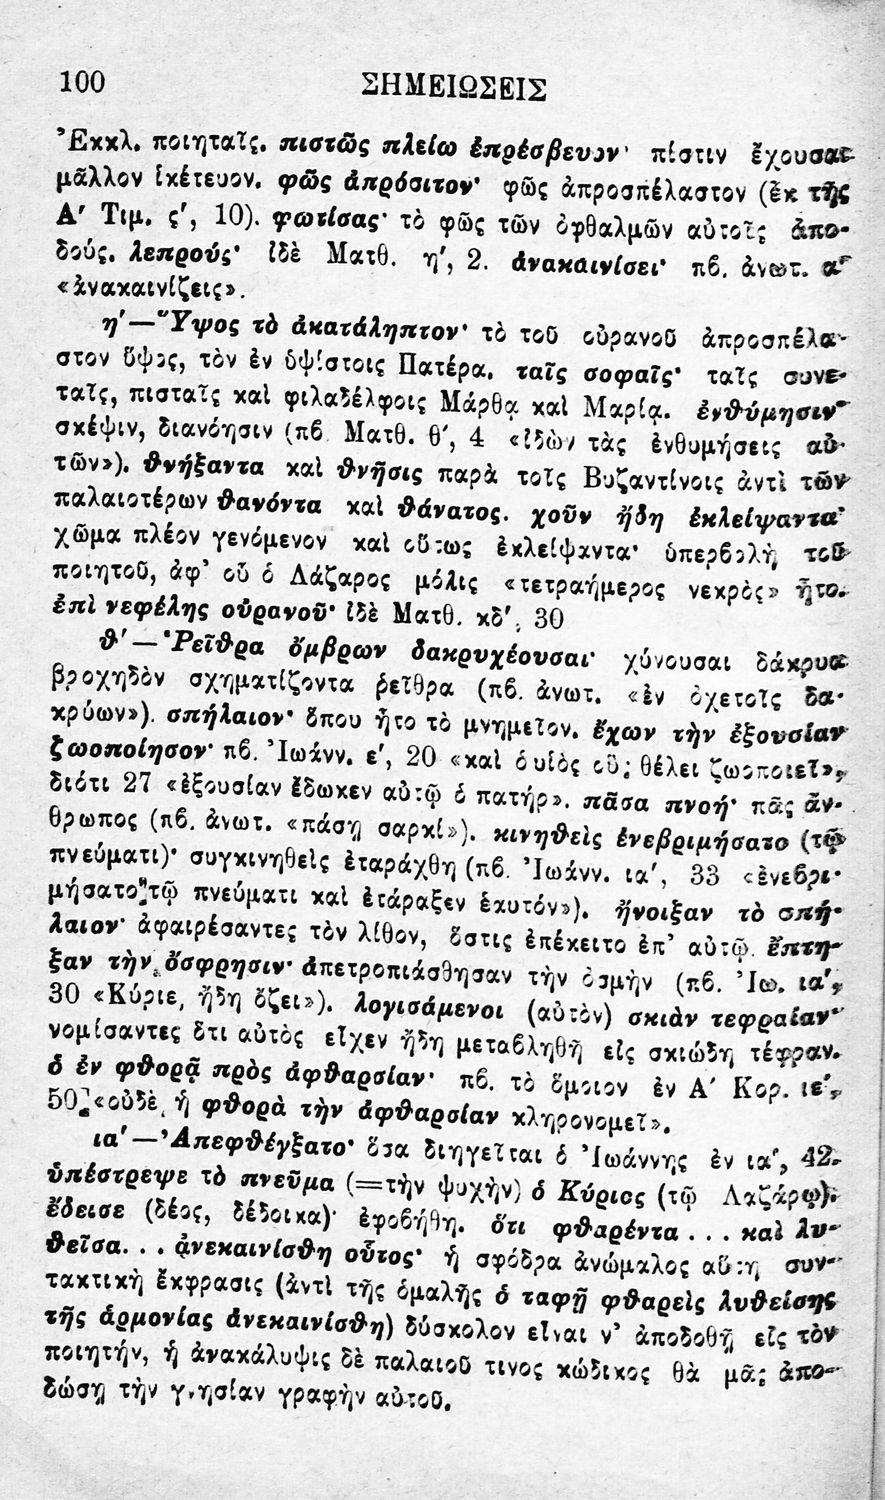 100 ΣΗΜΕΙΩΣΕΙΣ
Ἐκκλ. ποιηταῖς. πιστῶς πλείω ἐπρέσβευον· πίστιν ἔχουσαι
μᾶλλον ἱκέτευον. φῶς ἀπρόσιτον· φῶς ἀπροσπέλαστον (ἐκ τῆς
Α′ Τιμ. ς′, 10). φωτίσας· τὸ φῶς τῶν ὀφθαλμῶν αὐτοῖς ἀπο-
δούς. λεπρούς· ἰδὲ Ματθ. η′, 2. ἀνακαινίσει· πβ. ἀνωτ. α′
«ἀνακαινίζεις».
η′—Ὕψος τὸ ἀκατάληπτον· τὸ τοῦ οὐρανοῦ ἀπροσπέλα-
στον ὕψος, τὸν ἐν ὑψίστοις Πατέρα. ταῖς σοφαῖς· ταῖς συνε-
ταῖς, πισταῖς καὶ φιλαδέλφοις Μάρθᾳ καὶ Μαρίᾳ. ἐνθύμησιν·
σκέψιν, διανόησιν (πβ Ματθ. θ′, 4 «ἰδὼν τὰς ἐνθυμήσεις αὐ-
τῶν»). θνήξαντα καὶ θνῆσις παρὰ τοῖς Βυζαντίνοις ἀντὶ τῶν
παλαιοτέρων θανόντα καὶ θάνατος. χοῦν ἤδη ἐκλείψαντα·
χῶμα πλέον γενόμενον καὶ οὕτως ἐκλείψαντα· ὑπερβολὴ τοῦ
ποιητοῦ, ἀφ’ οὗ ὁ Λάζαρος μόλις «τετραήμερος νεκρὸς» ἦτο.
ἐπὶ νεφέλης οὐρανοῦ· ἰδὲ Ματθ. κδ′, 30
θ′—Ῥεῖθρα ὄμβρων δακρυχέουσαι· χύνουσαι δάκρυα
βροχηδὸν σχηματίζοντα ῥεῖθρα (πβ. ἀνωτ. «ἐν ὀχετοῖς δα-
κρύων»). σπήλαιον· ὅπου ἦτο τὸ μνημεῖον. ἔχων τὴν ἐξουσίαν
ζωοποίησον· πβ. Ἰωάνν. ε′, 20 «καὶ ὁ υἱὸς οὓς θέλει ζωοποιεῖ»,
διότι 27 «ἐξουσίαν ἔδωκεν αὐτῷ ὁ πατήρ». πᾶσα πνοή· πᾶς ἄν-
θρωπος (πβ. ἀνωτ. «πάσῃ σαρκί»). κινηθεὶς ἐνεβριμήσατο (τῷ
πνεύματι)· συγκινηθεὶς ἐταράχθη (πβ. Ἰωάνν. ια′, 33 «ἐνεβρι-
μήσατο τῷ πνεύματι καὶ ἐτάραξεν ἑαυτόν»). ἤνοιξαν τὸ σπή-
λαιον· ἀφαιρέσαντες τὸν λίθον, ὅστις ἐπέκειτο ἐπ’ αὐτῷ. ἔπτη-
ξαν τὴν ὄσφρησιν· ἀπετροπιάσθησαν τὴν ὀσμὴν (πβ. Ἰω. ια′,
30 «Κύριε, ἤδη ὄζει»). λογισάμενοι (αὐτὸν) σκιὰν τεφραίαν·
νομίσαντες ὅτι αὐτὸς εἶχεν ἤδη μεταβληθῆ εἰς σκιώδη τέφραν.
ὁ ἐν φθορᾷ πρὸς ἀφθαρσίαν· πβ. τὸ ὅμοιον ἐν Α′ Κορ. ιε′,
50 «οὐδὲ ἡ φθορὰ τὴν ἀφθαρσίαν κληρονομεῖ».
ια′—Ἀπεφθέγξατο· ὅσα διηγεῖται ὁ Ἰωάννης ἐν ια′, 42.
ὑπέστρεψε τὸ πνεῦμα (=τὴν ψυχὴν) ὁ Κύριος (τῷ Λαζάρῳ).
ἔδεισε (δέος, δέδοικα)· ἐφοβήθη. ὅτι φθαρέντα... καὶ λυ-
θεῖσα... ἀνεκαινίσθη οὗτος· ἡ σφόδρα ἀνώμαλος αὕτη συν-
τακτικὴ ἔκφρασις (ἀντὶ τῆς ὁμαλῆς ὁ ταφῇ φθαρεὶς λυθείσης
τῆς ἁρμονίας ἀνεκαινίσθη) δύσκολον εἶναι ν’ ἀποδοθῇ εἰς τὸν
ποιητήν, ἡ ἀνακάλυψις δὲ παλαιοῦ τινος κώδικος θὰ μᾶς ἀπο-
δώσῃ τὴν γνησίαν γραφὴν αὐτοῦ.